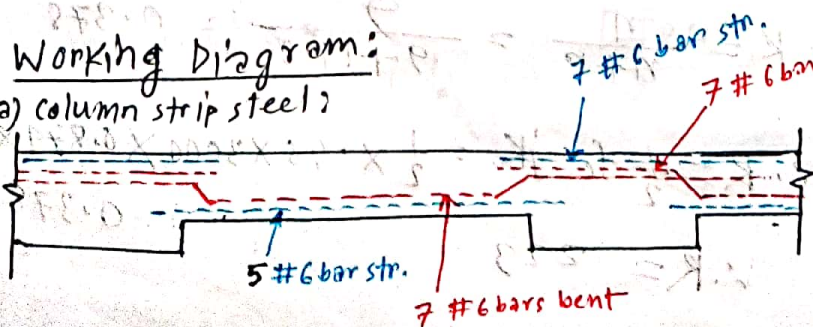 Working Diagram:
a) column strip steel:
7 #6 bar str.
7 #6 bar
5 #6 bar str.
7 #6 bars bent